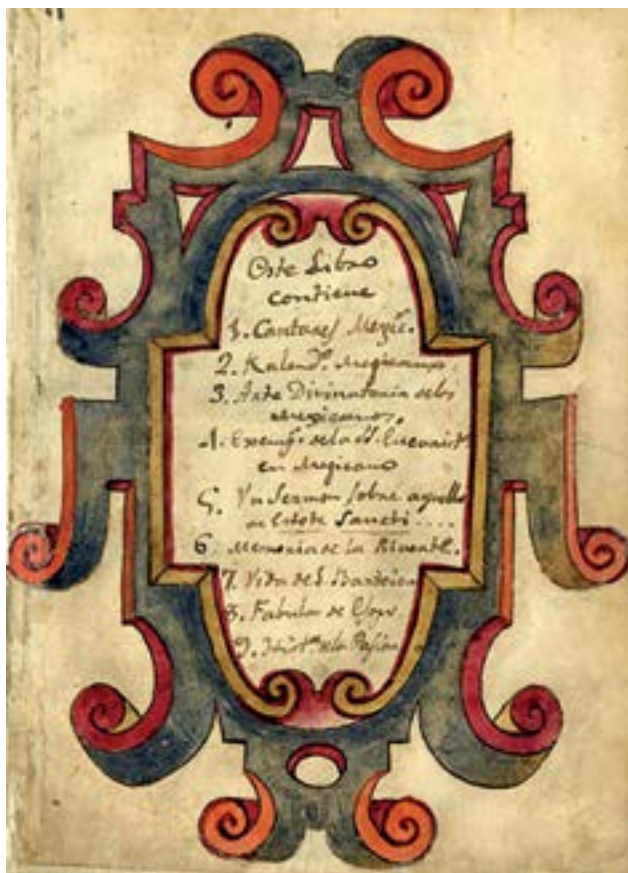 Este Libro
contiene
1. Cantares Megic.
2. Kalendo. Megicano
3. Arte Divinatoria delos
megicanos.
4. Exempo. de la SS. Eucarist.
en Megicano
5. Vn Sermon sobre aquello
de Estote Sancti ....
6. Memoria de la Muerte.
7. Vida de S. Bartolom
8. Fabulas de Esopo
9. Hista. dela Pasion